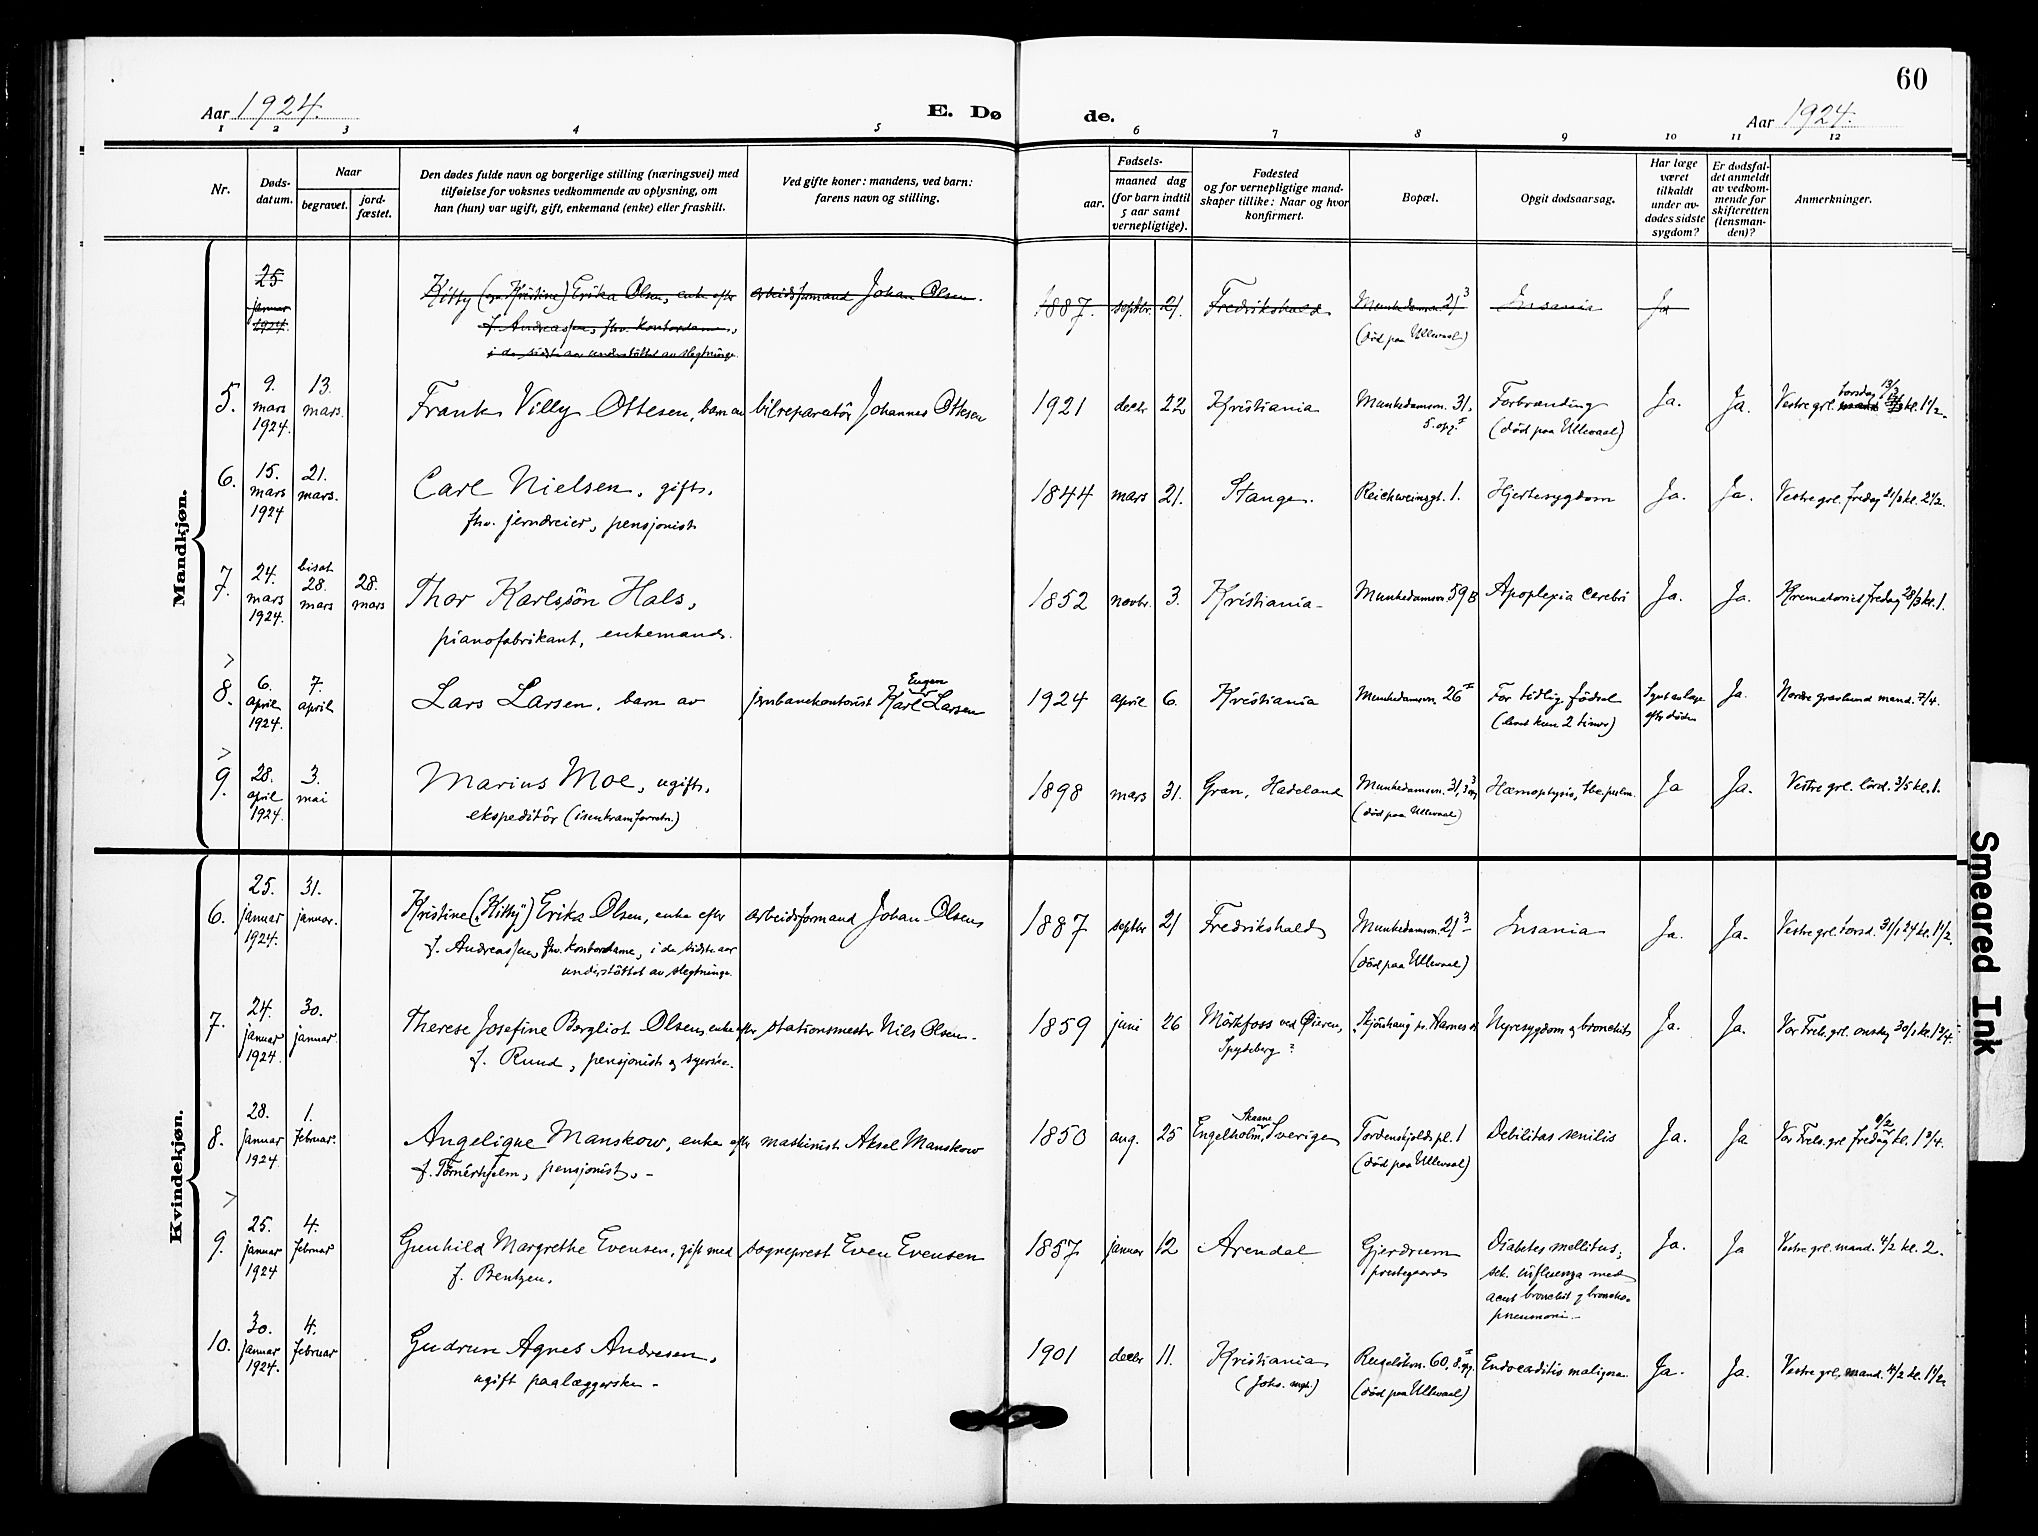 60
Aar 1924.
E. Dø de.
Aar 1924.
1 2 3 4 5 6 7 8 9 10 11 12
Nr.
Døds-
datum.
Naar
begravet.
jord-
fæstet.
Den dødes fulde navn og borgerlige stilling (næringsvei) med
tilføielse for voksnes vedkommende av oplysning, om
han (hun) var ugift, gift, enkemand (enke) eller fraskilt.
Ved gifte koner: mandens, ved barn:
farens navn og stilling.
Fødsels-
aar.
maaned dag
(for barn indtil
5 aar samt
vernepligtige).
Fødested
og for vernepligtige mand-
skaper tillike: Naar og hvor
konfirmert.
Bopæl.
Opgit dødsaarsag.
Har læge
været
tilkaldt
under av-
dødes sidste
sygdom?
Er dødsfal-
det anmeldt
av vedkom-
mende for
skifteretten
(lensman-
den)?
Anmerkninger.
Mandkjøn.
25 januar 1924. Kitty (Kristine) Erika Olsen, enke efter arbeidsformand Johan Olsen. 1887. septbr. 21. Fredrikshald Munkedamsvn. 21³ Insania Ja
f. Andreassen, fhv. kontordame, (död paa Ullevaal)
i de sidste aar understöttet av slegtninge.
5. 9. mars 1924. 13. mars. Frank Villy Ottesen, barn av bilreparatör Johannes Ottesen 1921 decbr 22 Kristiania Munkedamsvn. 31, Forbrænding Ja. Ja. Vestre grl. torsdag 13/3 kl. 1½.
5. opg. I (död paa Ullevaal)
6. 15. mars 1924 21. mars. Carl Nielsen, gift, 1844 mars 21. Stange. Reichweinsgt. 1. Hjertesygdom Ja. Ja. Vestre grl. fredag 21/3 kl. 2½.
fhv. jerndreier, pensjonist
7. 24. mars 1924. bisat 28. mars 28. mars Thor Karlssön Hals, 1852 novbr. 3. Kristiania Munkedamsvn. 59 B Apoplexia cerebri Ja. Ja. Krematoriet fredag 28/3 kl. 1.
pianofabrikant, enkemand.
8. 6. april 1924. 7. april Lars Larsen, barn av jernbanekontorist Karl Eugen Larsen 1924 april 6. Kristiania Munkedamsvn. 26 I For tidlig födsel Synt av læge Ja. Nordre gravlund mand. 7/4.
(levet kun 2 timer) efter döden
9. 28. april 1924. 3. mai Marius Moe, ugift, 1898 mars 31. Gran, Hadeland Munkedamsvn. 31, Hæmoptysis, tbc. pulm. Ja Ja. Vestre grl. lörd. 3/5 kl. 1.
ekspeditör (isenkramforretn.) (död paa Ullevaal)
Kvindekjøn.
6. 25. januar 1924. 31. januar. Kristine ("Kitty") Erika Olsen, enke efter arbeidsformand Johan Olsen 1887 septbr 21 Fredrikshald Munkedamsvn. 21³ Insania Ja. Ja. Vestre grl. torsd. 31/1 24 kl. 1½.
f. Andreassen, fhv. kontordame, i de sidste aar (död paa Ullevaal)
understöttet av slegtninge.
7. 24. januar 1924. 30. januar Therese Josefine Bergliot Olsen, enke efter stationsmester Nils Olsen. 1859 juni 26 Mörkfoss ved Öieren, Skjönhaug pr. Aarnes st. Nyresygdom og bronchit Ja. Ja. Vor Frels. grl. onsdag 30/1 kl. 1¾.
f. Ruud, pensjonist og syerske. Spydeberg?
8. 28. januar 1924 1. februar. Angelique Manskow, enke efter maskinist Aksel Manskow 1850 aug. 25 Engelholm, Skaane, Sverige Tordenskjolds pl. 1 Debilitas senilis Ja. Ja Vor Frels. grl fredag 1/2 kl. 1¾.
f. Törnerhjelm, pensjonist. (död paa Ullevaal)
9. 25. januar 1924 4. februar Gunhild Margrethe Evensen, gift med sogneprest Even Evensen 1857 januar 12 Arendal Gjerdrum Diabetes mellitus, Ja. Ja Vestre grl. mand. 4/2 kl. 2.
f. Bentzen. prestegaard sek. influenza med
acut bronchit og broncho-
pneumoni.
10. 30. januar 1924. 4. februar Gudrun Agnes Andresen, 1901 decbr 11. Kristiania 60, 8. opg. I Endocarditis maligna Ja. Ja. Vestre grl. mand. 4/2 kl. 1½.
ugift paalæggerske (Johs. mgh.) (död paa Ullevaal)
Smeared Ink